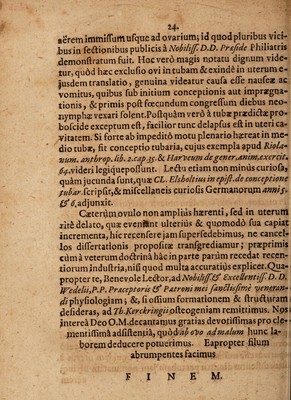 24.
aërem immissum usque ad ovarium; id quod pluribus vici-
bus in sectionibus publicis à Nobiliss. D.D. Præside Philiatris
demonstratum fuit. Hoc verò magis notatu dignum vide-
tur, quòd hæc exclusio ovi in tubam & exinde in uterum e-
jusdem translatio, genuina videatur causa esse nauseæ ac
vomitus, quibus sub initium conceptionis aut imprægna-
tionis, & primis post fœcundum congressum diebus neo-
nymphæ vexari solent. Postquàm verò à tubæ prædictæ pro-
boscide exceptum est, faciliori tunc delapsu est in uteri ca-
vitatem. Si fortè ab impedito motu plenario hæreat in me-
dio tubæ, fit conceptio tubaria, cujus exempla apud Riola-
num. anthrop. lib. 2. cap. 35. & Harveum de gener. anim. exercit.
64. videri legiq́ue possunt. Lectu etiam non minùs curiosa,
quàm jucunda sunt, quæ CL. Elsholtius in epist. de conceptione
tubar. scripsit, & miscellaneis curiosis Germanorum anni 5.
& 6. adjunxit.
Cæterùm ovulo non ampliùs hærenti, sed in uterum
ritè delato, quæ eveniant ulteriùs & quomodò sua capiat
incrementa, hîc recensere jam supersedebimus, ne cancel-
los dissertationis propositæ transgrediamur; præprimis
cùm à veterum doctrina hâc in parte parùm recedat recen-
tiorum industria, nisi quod multa accuratiùs explicet. Qua-
propter te, Benevole Lector, ad Nobiliss. & Excellentiss. D.D.
Wedelii, P.P. Præceptoris & Patroni mei sanctissimè veneran-
di physiologiam; &, si ossium formationem & structuram
desideras, ad Th. Kerckringii osteogeniam remittimus. Nos
interea Deo O.M. decantamus gratias devotissimas pro cle-
mentissimâ adsistentiâ, quòd ab ovo ad malum hunc la-
borem deducere potuerimus. Eapropter filum
abrumpentes facimus
FINEM.